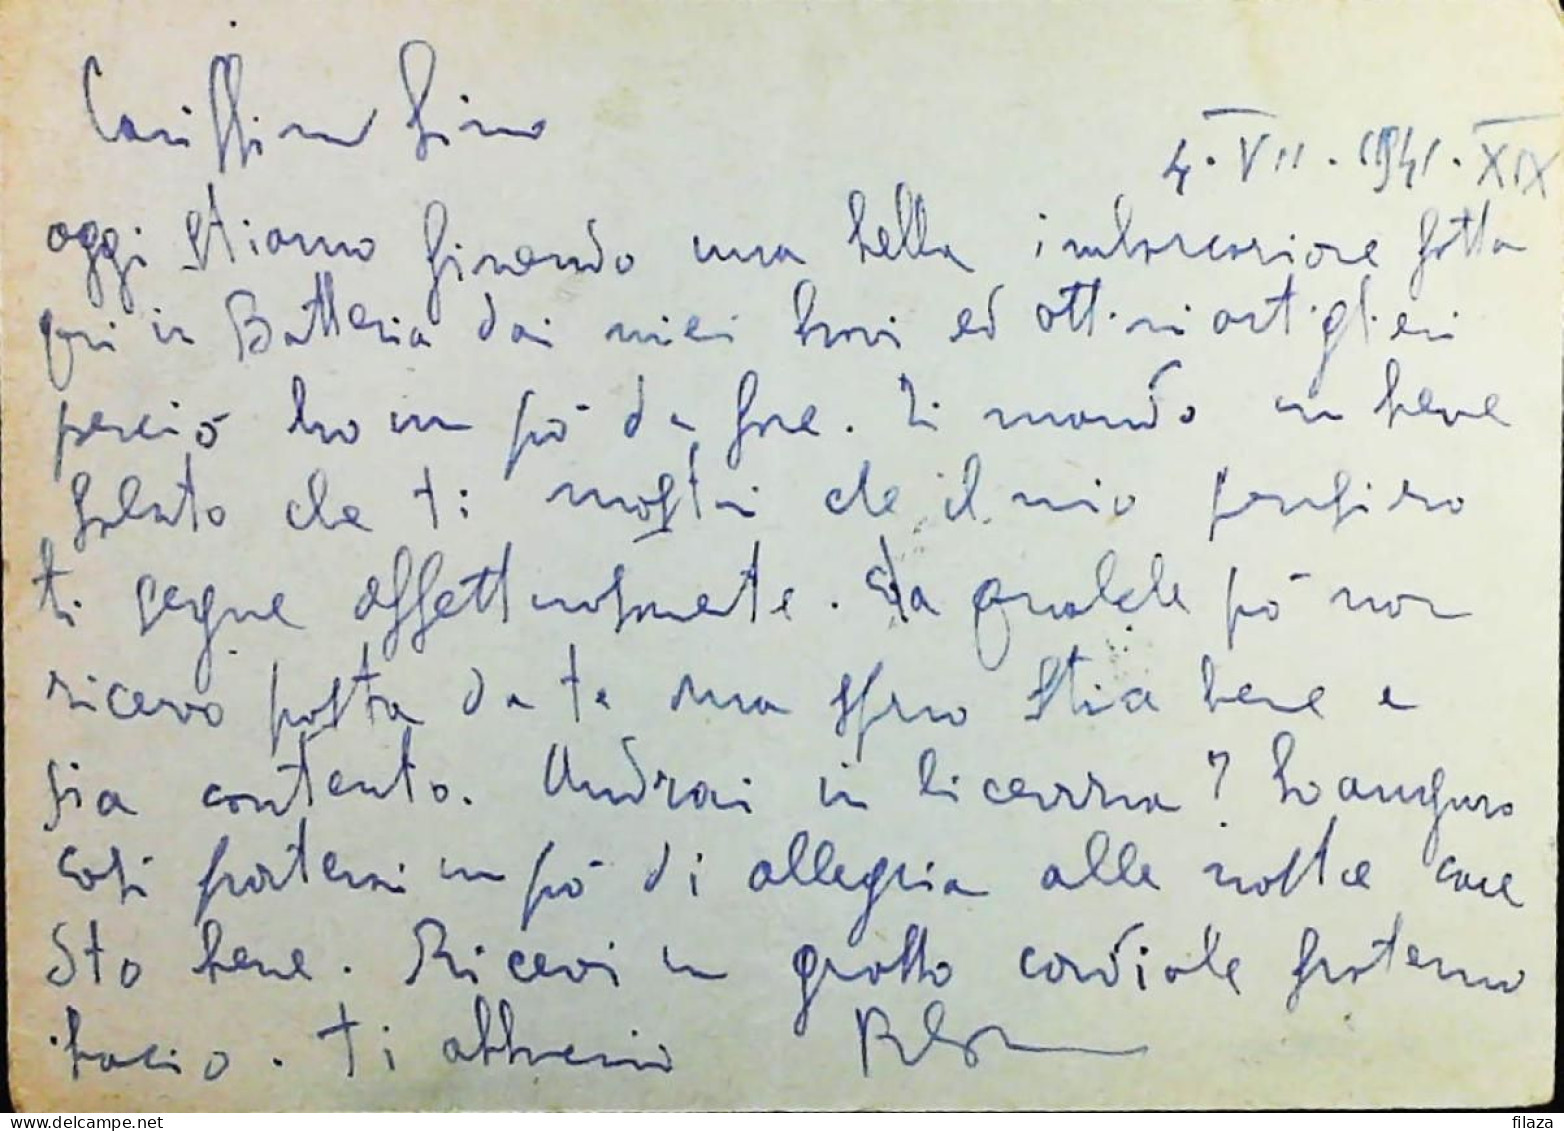 Carissimo Gino
4. VII. 1941. XIX
oggi stiamo girando una bella imbarcazione fatta
qui in Batteria dai miei bravi ed ottimi artiglieri
perciò ho un pò da fare. Ti mando un breve
saluto che ti mostri che il mio pensiero
ti segue affettuosamente. Da qualche pò non
ricevo posta da te ma spero stia bene e
sia contento. Andrai in licenza? Lo auguro
così porterai un pò di allegria alle nostre care
Sto bene. Ricevi un grosso cordiale fraterno
bacio. Ti abbraccio
filaza